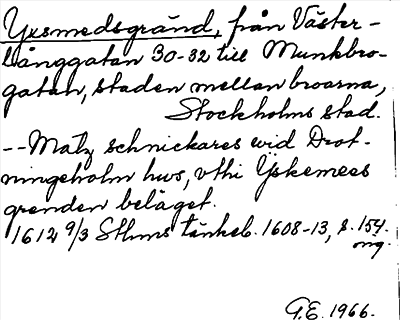 Yxsmedsgränd, från Väster-
långgatan 30-32 till Munkbro-
gatan, staden mellan broarna,
Stockholms stad.
-- Matz schnickares wid Drot-
ningeholm hws, vthi Yskemees
grenden beläget.
1612 9/3 Sthms tänkeb. 1608-13, s. 154.
omg.
G.E. 1966.